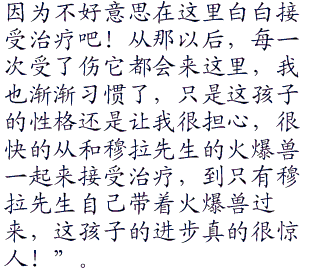 因为不好意思在这里白白接
受治疗吧！从那以后，每一
次受了伤它都会来这里，我
也渐渐习惯了，只是这孩子
的性格还是让我很担心，很
快的从和穆拉先生的火爆兽
一起来接受治疗，到只有穆
拉先生自己带着火爆兽过
来，这孩子的进步真的很惊
人！”。